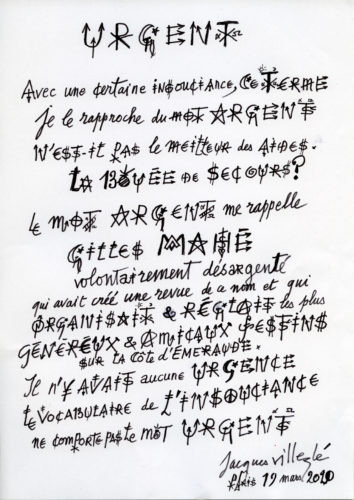 URGENT
Avec une certaine insouciance, ce terme
je le rapproche du mot ARGENT
N'est-il pas le meilleur des aides.
La bouée de secours?
Le mot ARGENT me rappelle
Gilles MAHÉ
volontairement désargenté
qui avait créé une revue de a nom et qui
organisait & réglait les plus
généreux & amicaux festins
sur la côte d'Émeraude.
Il n'y avait aucune URGENCE
le vocabulaire de l'insouciance
ne comporte pas le mot URGENT
Jacques Villeglé
Paris 19 mars 2010